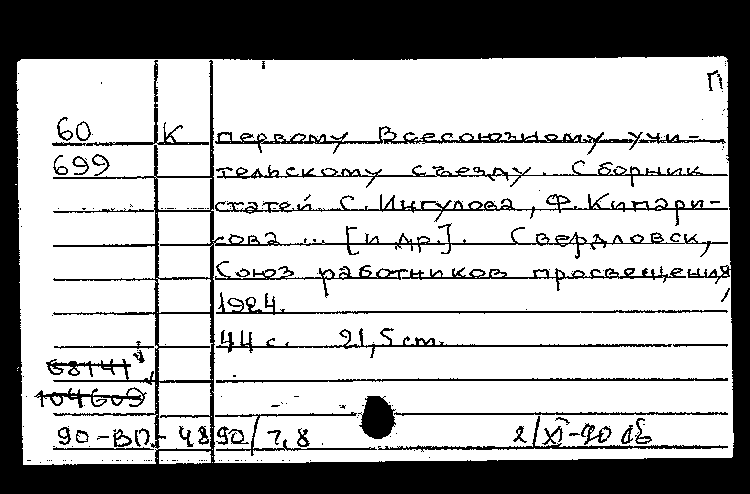 П
60 К первому Всесоюзному учи-
699 тельскому съезду. Сборник
статей С. Ингулова, Ф. Кипари-
сова ... [и др.]. Свердловск,
Союз работников просвещения,
1924.
44 с. 21,5 cm.
68141
104609
90-ВП-4890/7,8 2/XI-90